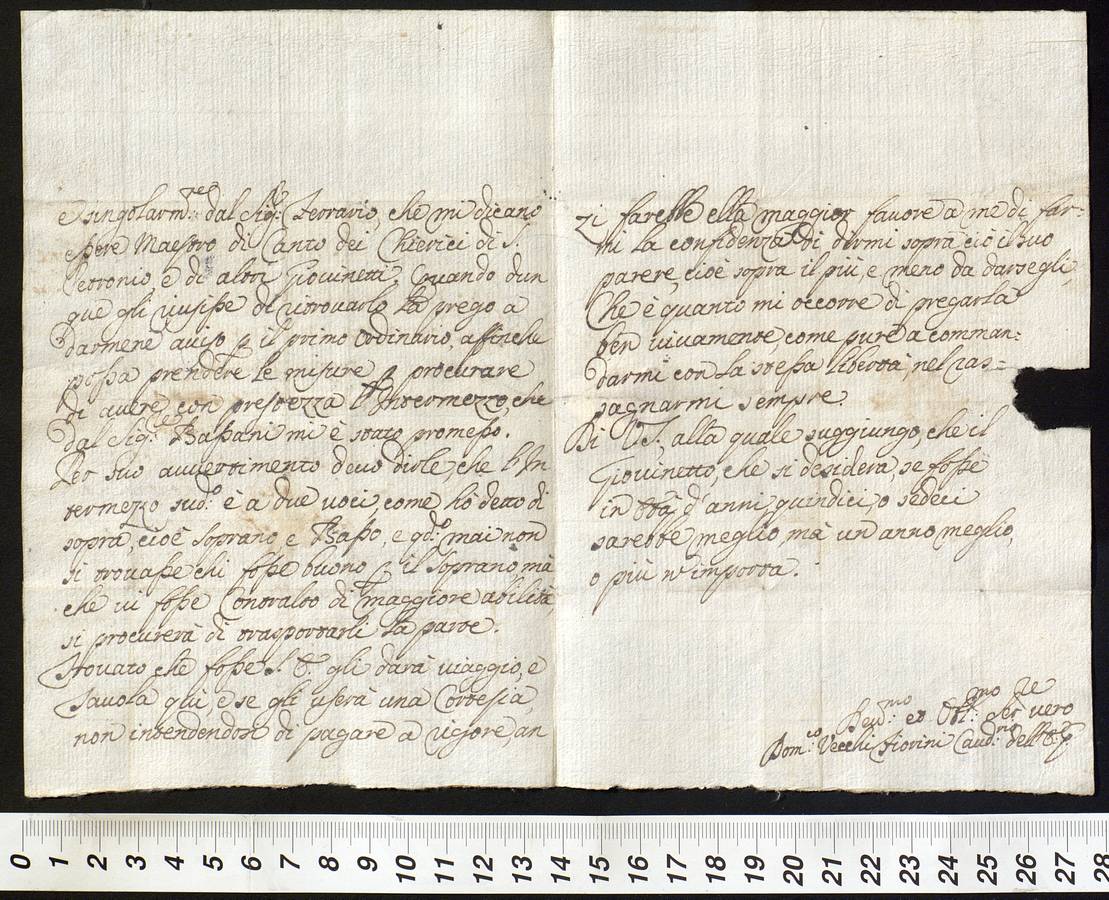 e singolarm.re dal Sig.r Ferrario, che mi dicano
essere Maestro di Canto dei Chierici di S.
Petronio, e di altri Giovinetti. Quando dun
que gli riuscisse di ritrovarlo La prego a
darmene aviso p il primo ordinario, affinche
possa prendere le misure p procurare
di avere con prestezza l'Intermezzo, che
dal Sig.r Bassani mi è stato promesso.
Per suo avvertimento devo dirle, che l'In
termezzo sud.o è a due voci, come hò detto di
sopra, cioè Soprano, e Basso, e q.do mai non
si trovasse chi fosse buono p il Soprano, mà
che vi fosse Contralto di maggiore abilità,
si procurerà di trasportarli La parte.
Trovato che fosse S. E. gli darà viaggio, e
Tavola quì, e se gli userà una Cortesia,
non intendendosi di pagare a rigore, an
zi farebbe ella maggior favore à me di far=
mi la confidenza di dirmi sopra ciò il suo
parere, cioè sopra il più e meno da darsegli,
Che è quanto mi occorre di pregarla
ben vivamente, come pure à comman=
darmi con La stessa libertà, nel ras=
segnarmi sempre.
Di V.S. alla quale suggiungo, che il
Giovinetto, che si desidera, se fosse
in età d'anni quindici, o sedeci
sarebbe meglio, mà un anno meglio,
o più n'importa.
Dev.mo ed Obl.mo Se.re vero
Dom.co Vecchi Fiorini